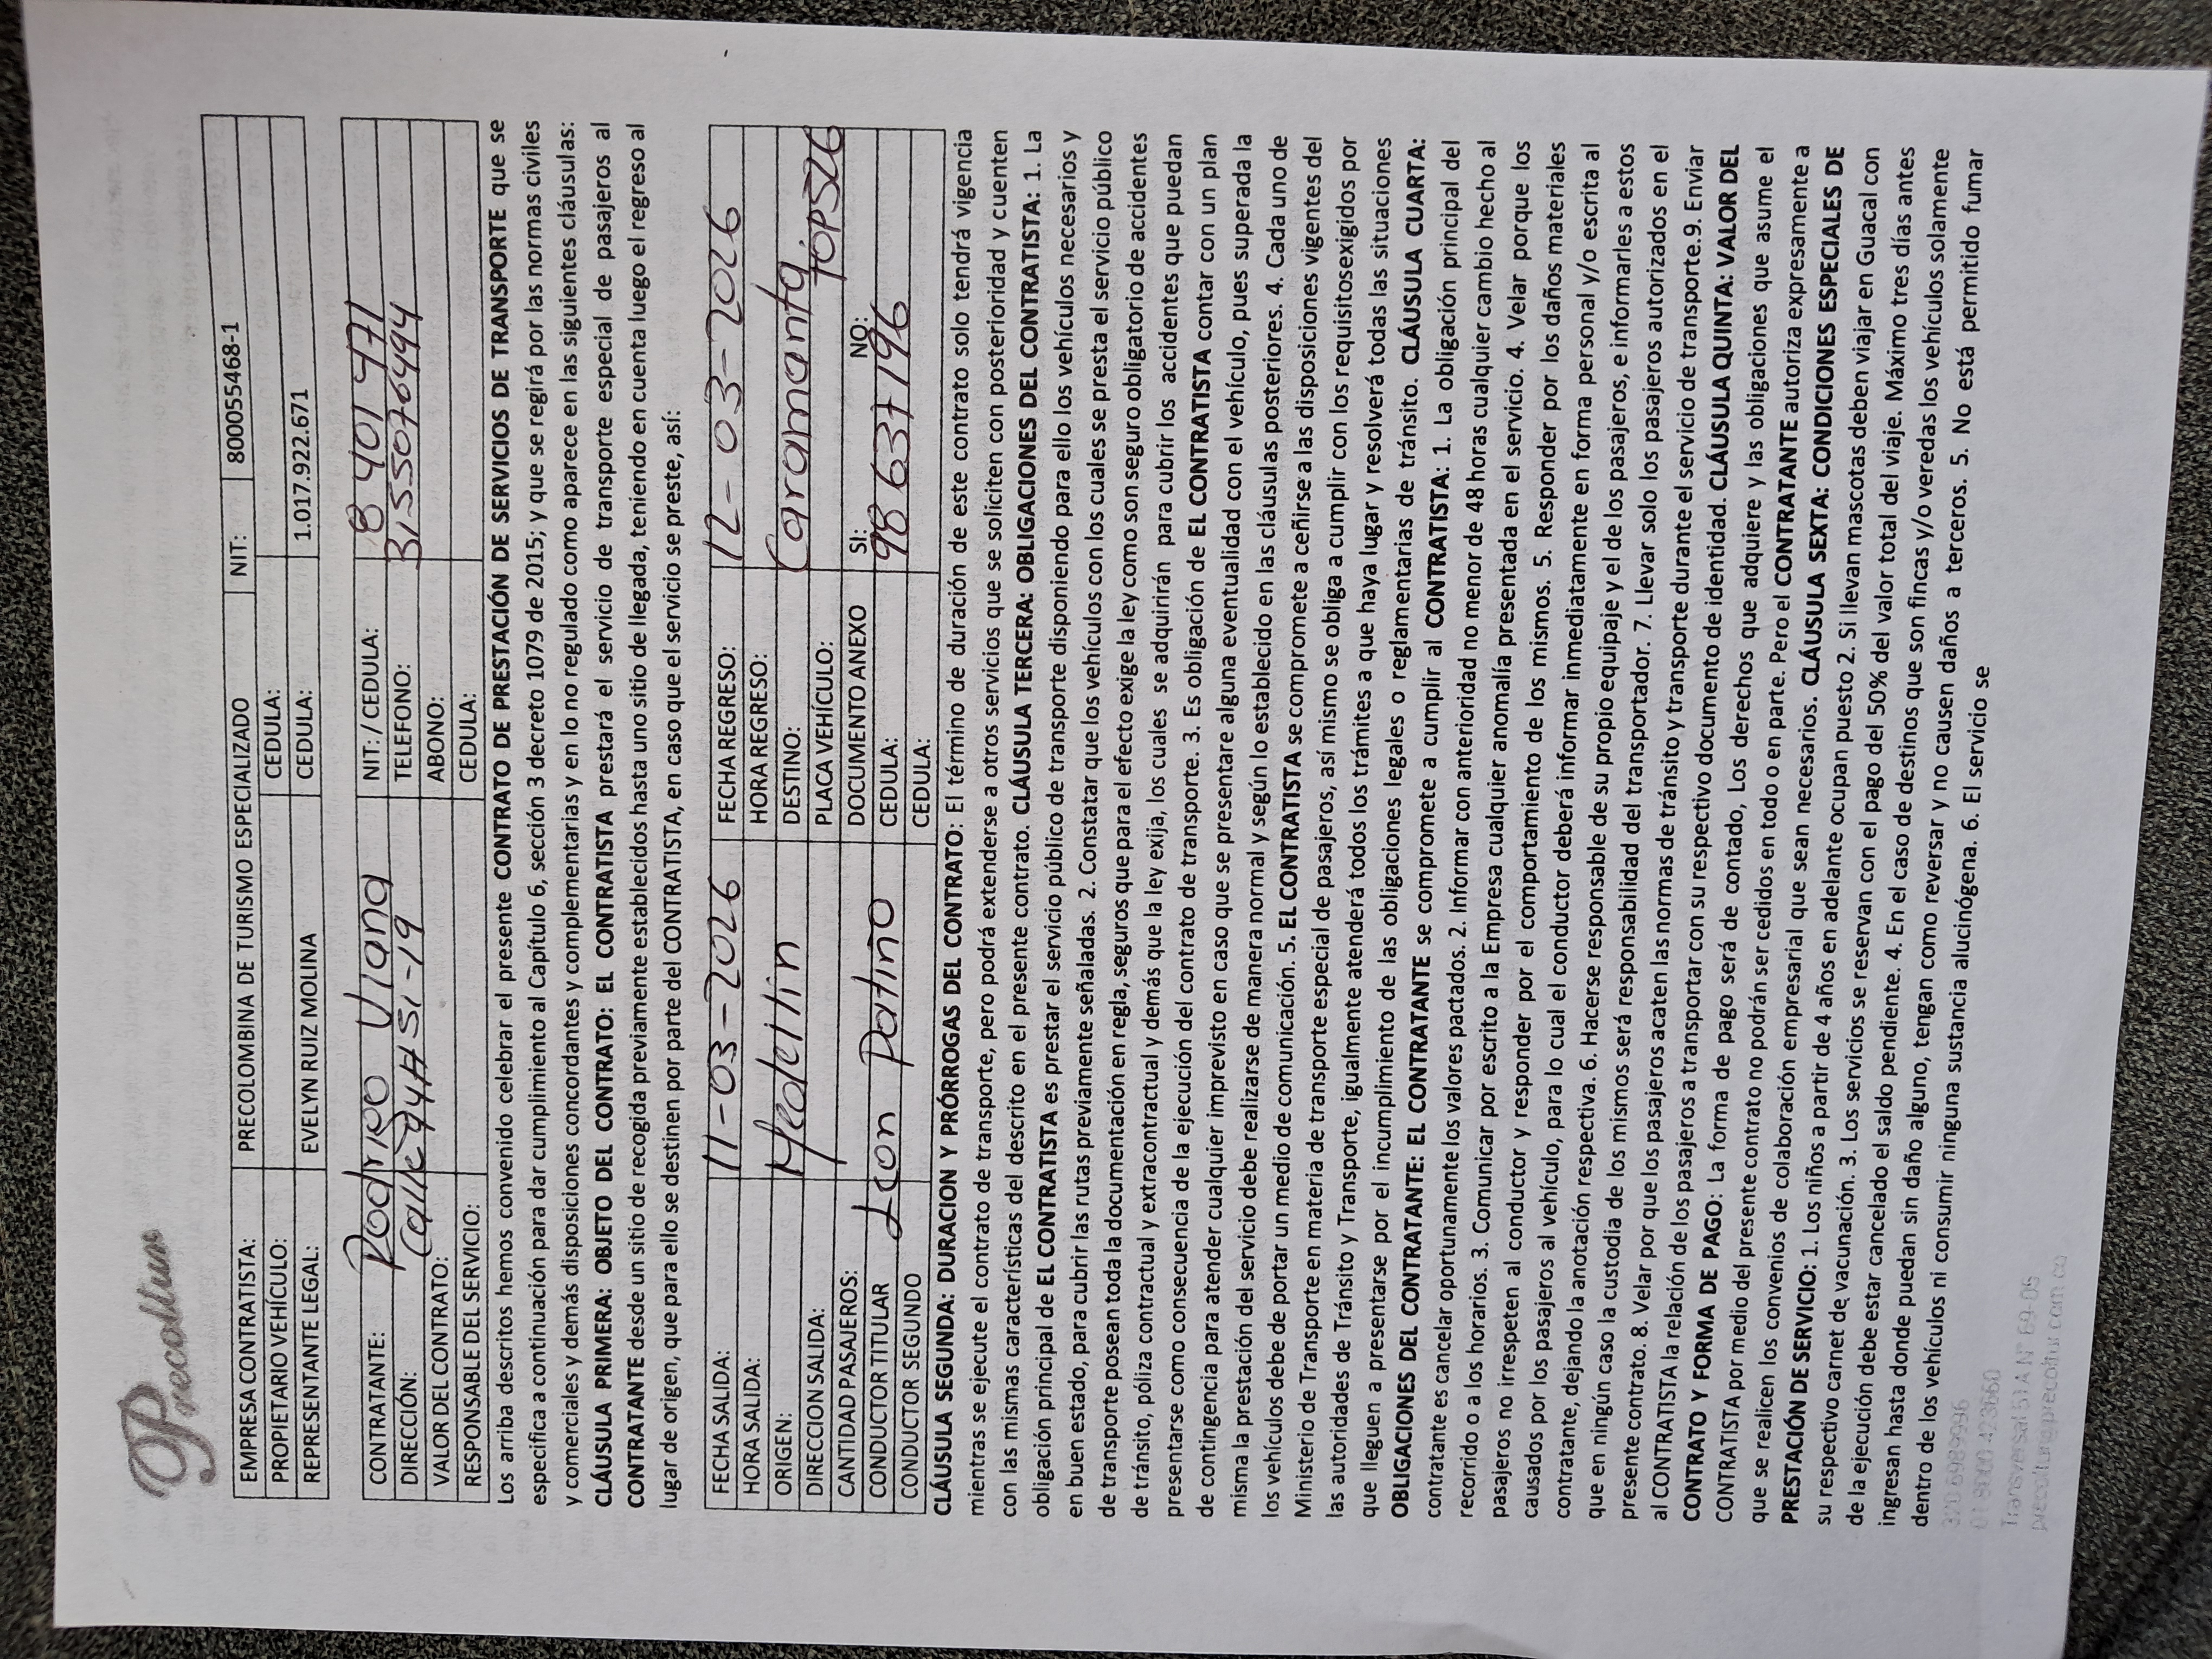 Precoltur
EMPRESA CONTRATISTA: PRECOLOMBINA DE TURISMO ESPECIALIZADO NIT: 800055468-1
PROPIETARIO VEHÍCULO: CEDULA:
REPRESENTANTE LEGAL: EVELYN RUIZ MOLINA CEDULA: 1.017.922.671
CONTRATANTE: Rodrigo Uiana NIT./ CEDULA: 8 401 471
DIRECCIÓN: Calle 94 # 51-19 TELEFONO: 3155076494
VALOR DEL CONTRATO: ABONO:
RESPONSABLE DEL SERVICIO: CEDULA:
Los arriba descritos hemos convenido celebrar el presente CONTRATO DE PRESTACIÓN DE SERVICIOS DE TRANSPORTE que se
especifica a continuación para dar cumplimiento al Capítulo 6, sección 3 decreto 1079 de 2015; y que se regirá por las normas civiles
y comerciales y demás disposiciones concordantes y complementarias y en lo no regulado como aparece en las siguientes cláusulas:
CLÁUSULA PRIMERA: OBJETO DEL CONTRATO: EL CONTRATISTA prestará el servicio de transporte especial de pasajeros al
CONTRATANTE desde un sitio de recogida previamente establecidos hasta uno sitio de llegada, teniendo en cuenta luego el regreso al
lugar de origen, que para ello se destinen por parte del CONTRATISTA, en caso que el servicio se preste, así:
FECHA SALIDA: 11-03-2026 FECHA REGRESO: 12-03-2026
HORA SALIDA: HORA REGRESO:
ORIGEN: Medellin DESTINO: Caramanta
DIRECCION SALIDA: PLACA VEHÍCULO: TOP526
CANTIDAD PASAJEROS: DOCUMENTO ANEXO SI: NO:
CONDUCTOR TITULAR Leon Patiño CEDULA: 98 637196
CONDUCTOR SEGUNDO CEDULA:
CLÁUSULA SEGUNDA: DURACION Y PRÓRROGAS DEL CONTRATO: El término de duración de este contrato solo tendrá vigencia
mientras se ejecute el contrato de transporte, pero podrá extenderse a otros servicios que se soliciten con posterioridad y cuenten
con las mismas características del descrito en el presente contrato. CLÁUSULA TERCERA: OBLIGACIONES DEL CONTRATISTA: 1. La
obligación principal de EL CONTRATISTA es prestar el servicio público de transporte disponiendo para ello los vehículos necesarios y
en buen estado, para cubrir las rutas previamente señaladas. 2. Constatar que los vehículos con los cuales se presta el servicio público
de transporte posean toda la documentación en regla, seguros que para el efecto exige la ley como son seguro obligatorio de accidentes
de tránsito, póliza contractual y extracontractual y demás que la ley exija, los cuales se adquirirán para cubrir los accidentes que puedan
presentarse como consecuencia de la ejecución del contrato de transporte. 3. Es obligación de EL CONTRATISTA contar con un plan
de contingencia para atender cualquier imprevisto en caso que se presentare alguna eventualidad con el vehículo, pues superada la
misma la prestación del servicio debe realizarse de manera normal y según lo establecido en las cláusulas posteriores. 4. Cada uno de
los vehículos debe de portar un medio de comunicación. 5. EL CONTRATISTA se compromete a ceñirse a las disposiciones vigentes del
Ministerio de Transporte en materia de transporte especial de pasajeros, así mismo se obliga a cumplir con los requisitosexigidos por
las autoridades de Tránsito y Transporte, igualmente atenderá todos los trámites a que haya lugar y resolverá todas las situaciones
que lleguen a presentarse por el incumplimiento de las obligaciones legales o reglamentarias de tránsito. CLÁUSULA CUARTA:
OBLIGACIONES DEL CONTRATANTE: EL CONTRATANTE se compromete a cumplir al CONTRATISTA: 1. La obligación principal del
contratante es cancelar oportunamente los valores pactados. 2. Informar con anterioridad no menor de 48 horas cualquier cambio hecho al
recorrido o a los horarios. 3. Comunicar por escrito a la Empresa cualquier anomalía presentada en el servicio. 4. Velar porque los
pasajeros no irrespeten al conductor y responder por el comportamiento de los mismos. 5. Responder por los daños materiales
causados por los pasajeros al vehículo, para lo cual el conductor deberá informar inmediatamente en forma personal y/o escrita al
contratante, dejando la anotación respectiva. 6. Hacerse responsable de su propio equipaje y el de los pasajeros, e informarles a estos
que en ningún caso la custodia de los mismos será responsabilidad del transportador. 7. Llevar solo los pasajeros autorizados en el
presente contrato. 8. Velar por que los pasajeros acaten las normas de tránsito y transporte durante el servicio de transporte.9. Enviar
al CONTRATISTA la relación de los pasajeros a transportar con su respectivo documento de identidad. CLÁUSULA QUINTA: VALOR DEL
CONTRATO Y FORMA DE PAGO: La forma de pago será de contado, Los derechos que adquiere y las obligaciones que asume el
CONTRATISTA por medio del presente contrato no podrán ser cedidos en todo o en parte. Pero el CONTRATANTE autoriza expresamente a
que se realicen los convenios de colaboración empresarial que sean necesarios. CLÁUSULA SEXTA: CONDICIONES ESPECIALES DE
PRESTACIÓN DE SERVICIO: 1. Los niños a partir de 4 años en adelante ocupan puesto 2. Si llevan mascotas deben viajar en Guacal con
su respectivo carnet de vacunación. 3. Los servicios se reservan con el pago del 50% del valor total del viaje. Máximo tres días antes
de la ejecución debe estar cancelado el saldo pendiente. 4. En el caso de destinos que son fincas y/o veredas los vehículos solamente
ingresan hasta donde puedan sin daño alguno, tengan como reversar y no causen daños a terceros. 5. No está permitido fumar
dentro de los vehículos ni consumir ninguna sustancia alucinógena. 6. El servicio se
320 6989996
01 8000 423660
Transversal 51A N° 69-05
precoltur@precoltur.com.co